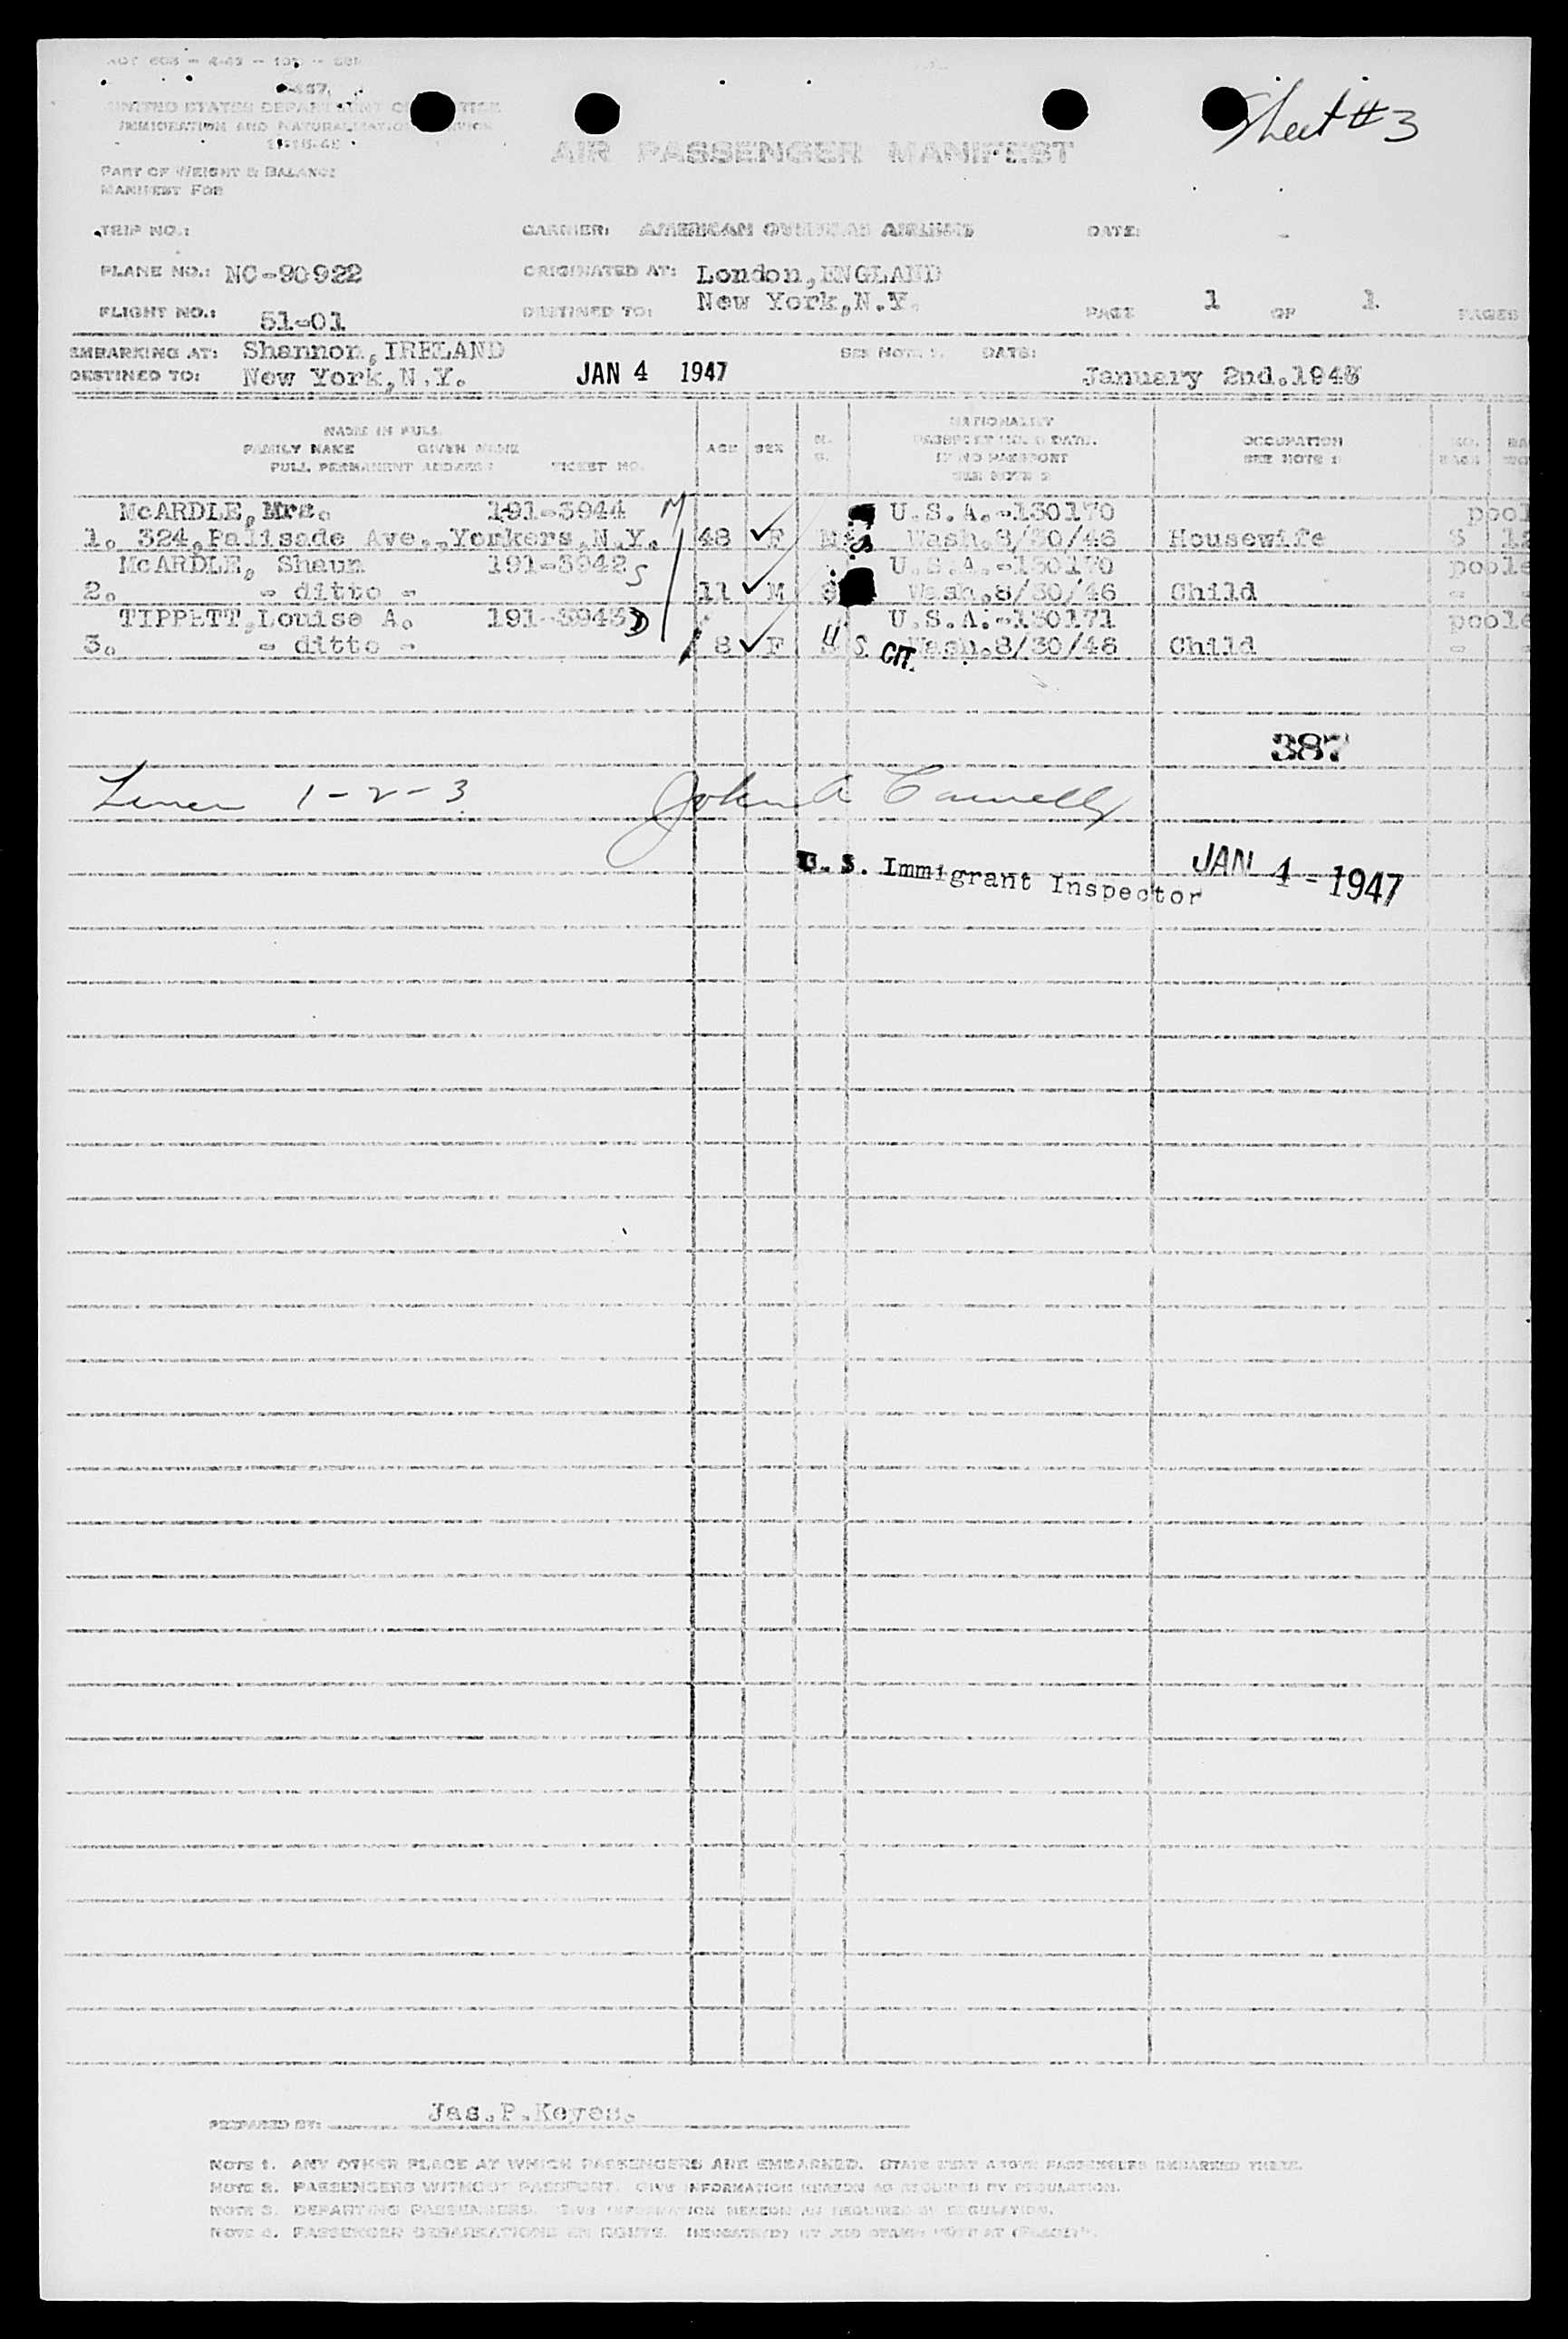 Sheet # 3
UNITED STATES DEPARTMENT OF JUSTICE
IMMIGRATION AND NATURALIZATION SERVICE
AIR PASSENGER MANIFEST
PART OF WEIGHT & BALANCE
MANIFEST FOR
TRIP NO.: CARRIER: AMERICAN OVERSEAS AIRLINES DATE:
PLANE NO.: NC-90922 ORIGINATED AT: London, ENGLAND
FLIGHT NO.: 51-01 DESTINED TO: New York, N.Y. PAGE 1 OF 1 PAGES
EMBARKING AT: Shannon, IRELAND SEE NOTE 1. DATE:
DESTINED TO: New York, N.Y. JAN 4 1947 January 2nd. 194
NAME IN FULL
FAMILY NAME GIVEN NAME
FULL PERMANENT ADDRESS TICKET NO.
AGE SEX M. S.
NATIONALITY
PASSPORT NO. & DATE.
IF NO PASSPORT
SEE NOTE 2
OCCUPATION
SEE NOTE
NO. BAGS
McARDLE, Mrs. 191-3944 M U.S.A.-130170 pool
1. 324, Palisade Ave.,Yonkers, N.Y. 48 ✓ F M Wash. 8/30/46 Housewife
McARDLE, Shaun 191-3942 S U.S.A.-130170 poole
2. - ditto - 11 ✓ M S Wash. 8/30/46 Child - -
TIPPETT, Louise A. 191-3943 D U.S.A.-130171 poole
3. - ditto - 8 ✓ F S CIT. Wash. 8/30/46 Child - -
387
1-2-3 John A
U. S. Immigrant Inspector JAN 4 - 1947
PREPARED BY: Jas. P. Keyes.
NOTE 1. ANY OTHER PLACE AT WHICH PASSENGERS ARE EMBARKED. STATE NEXT ABOVE PASSENGERS EMBARKED THERE.
NOTE 2. PASSENGERS WITHOUT PASSPORT. GIVE INFORMATION HEREON AS REQUIRED BY REGULATION.
NOTE 3. DEPARTING PASSENGERS. GIVE INFORMATION HEREON AS REQUIRED BY REGULATION.
NOTE 4. PASSENGER DEBARKATIONS EN ROUTE.